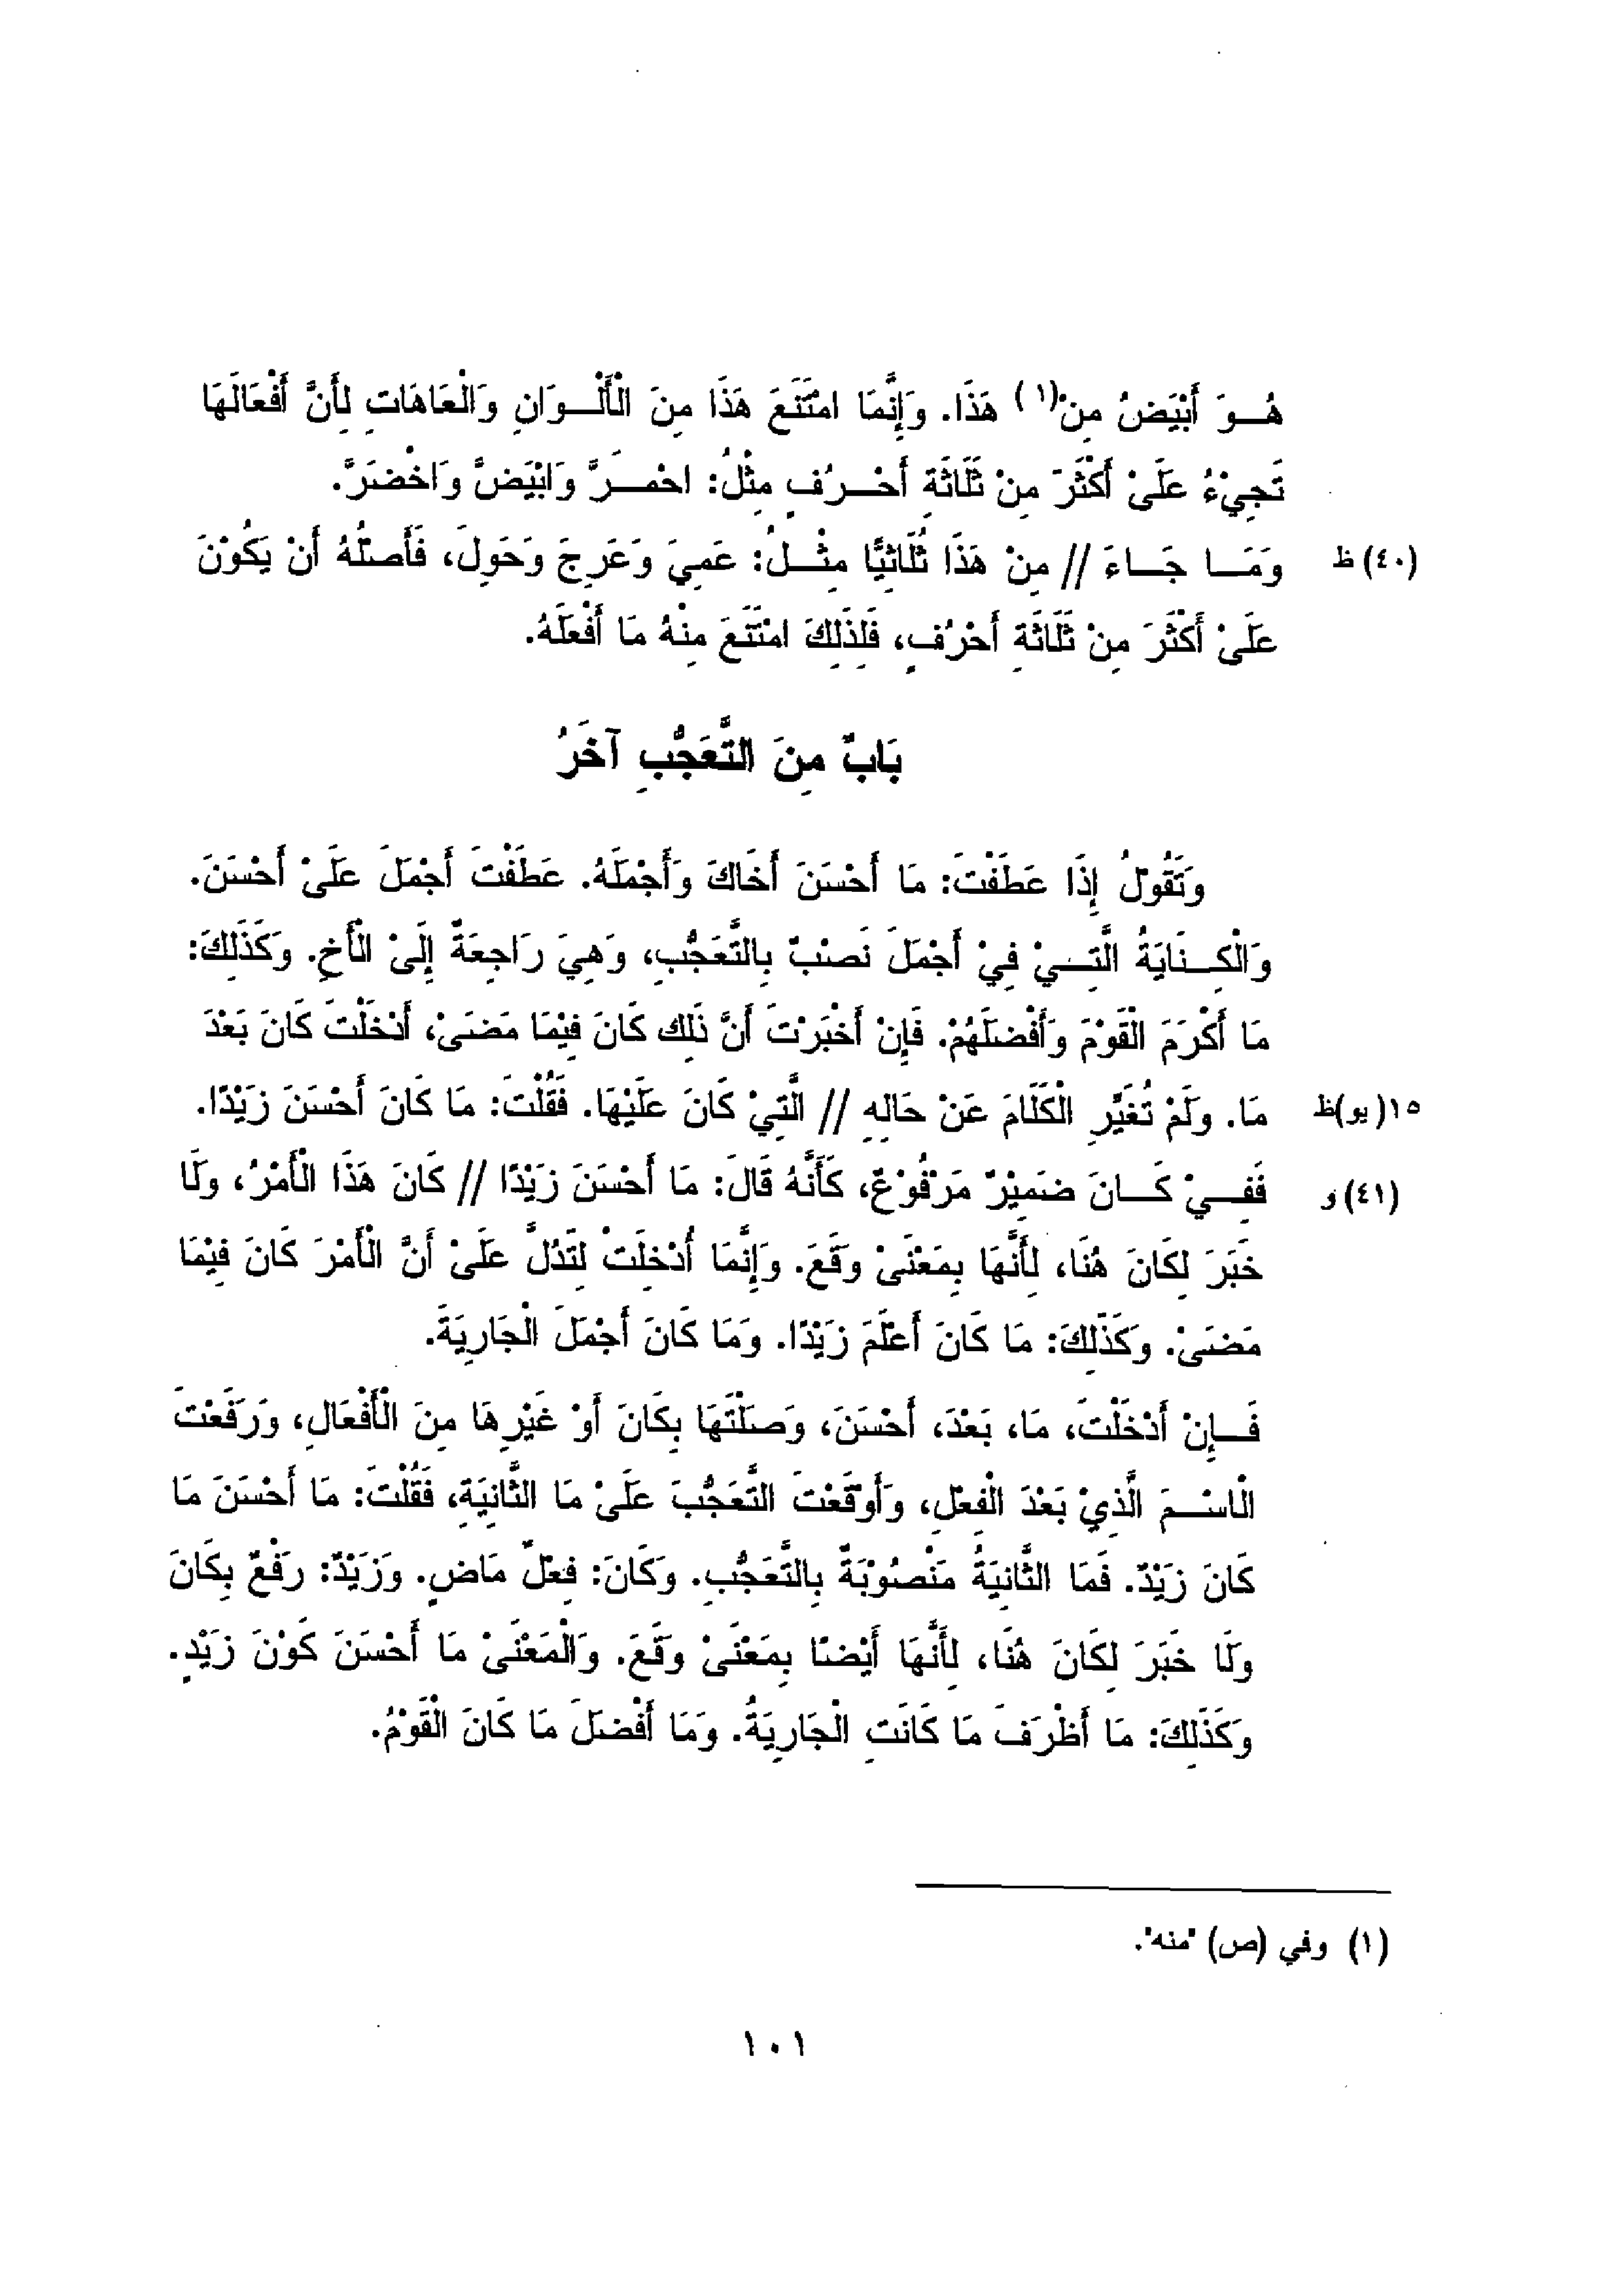 هُـوَ أَبْيَضُ مِنْ(١) هَذَا. وَإِنَّمَا امْتَنَعَ هَذَا مِنَ الْأَلْـوَانِ وَالْعَاهَاتِ لِأَنَّ أَفْعَالَهَا
تَجِيْءُ عَلَىْ أَكْثَرَ مِنْ ثَلَاثَةِ أَحْـرُفٍ مِثْلُ: احْمَـرَّ وَابْيَضَّ وَاخْضَرَّ.
(٤٠)ظ وَمَـا جَـاءَ // مِنْ هَذَا ثُلَاثِيًّا مِثْـلُ: عَمِيَ وَعَرِجَ وَحَوِلَ، فَأَصْلُهُ أَنْ يَكُوْنَ
عَلَىْ أَكْثَرَ مِنْ ثَلَاثَةِ أَحْرُفٍ، فَلِذَلِكَ امْتَنَعَ مِنْهُ مَا أَفْعَلَهُ.
بَابٌ مِنَ التَّعَجُّبِ آخَرُ
وَتَقُوْلُ إِذَا عَطَفْتَ: مَا أَحْسَنَ أَخَاكَ وَأَجْمَلَهُ. عَطَفْتَ أَجْمَلَ عَلَىْ أَحْسَنَ.
وَالْكِـنَايَةُ الَّتِـيْ فِيْ أَجْمَلَ نَصْبٌ بِالتَّعَجُّبِ، وَهِيَ رَاجِعَةٌ إِلَىْ الْأَخِ. وَكَذَلِكَ:
مَا أَكْرَمَ الْقَوْمَ وَأَفْضَلَهُمْ. فَإِنْ أَخْبَرْتَ أَنَّ ذَلِك كَانَ فِيْمَا مَضَىْ، أَدْخَلْتَ كَانَ بَعْدَ
١٥(يو)ظ مَا. وَلَمْ تُغَيِّرِ الْكَلَامَ عَنْ حَالِهِ // الَّتِيْ كَانَ عَلَيْهَا. فَقُلْتَ: مَا كَانَ أَحْسَنَ زَيْدًا.
(٤١)و فَفِـيْ كَـانَ ضَمِيْرٌ مَرْفُوْعٌ، كَأَنَّهُ قَالَ: مَا أَحْسَنَ زَيْدًا // كَانَ هَذَا الْأَمْرُ، وَلَا
خَبَرَ لِكَانَ هُنَا، لِأَنَّهَا بِمَعْنَىْ وَقَعَ. وَإِنَّمَا أُدْخِلَتْ لِتَدُلَّ عَلَىْ أَنَّ الْأَمْرَ كَانَ فِيْمَا
مَضَىْ. وَكَذَلِكَ: مَا كَانَ أَعْلَمَ زَيْدًا. وَمَا كَانَ أَجْمَلَ الْجَارِيَةَ.
فَـإِنْ أَدْخَلْتَ، مَا، بَعْدَ، أَحْسَنَ، وَصَلْتَهَا بِكَانَ أَوْ غَيْرِهَا مِنَ الْأَفْعَالِ، وَرَفَعْتَ
الْاسْـمَ الَّذِيْ بَعْدَ الْفِعْلِ، وَأَوْقَعْتَ التَّعَجُّبَ عَلَىْ مَا الثَّانِيَةِ، فَقُلْتَ: مَا أَحْسَنَ مَا
كَانَ زَيْدٌ. فَمَا الثَّانِيَةُ مَنْصُوْبَةٌ بِالتَّعَجُّبِ. وَكَانَ: فِعْلٌ مَاضٍ. وَزَيْدٌ: رَفْعٌ بِكَانَ
وَلَا خَبَرَ لِكَانَ هُنَا، لِأَنَّهَا أَيْضًا بِمَعْنَىْ وَقَعَ. وَالْمَعْنَىْ مَا أَحْسَنَ كَوْنَ زَيْدٍ.
وَكَذَلِكَ: مَا أَظْرَفَ مَا كَانَتِ الْجَارِيَةُ. وَمَا أَفْضَلَ مَا كَانَ الْقَوْمُ.
(١) وفي (ص) "منه".
١٠١